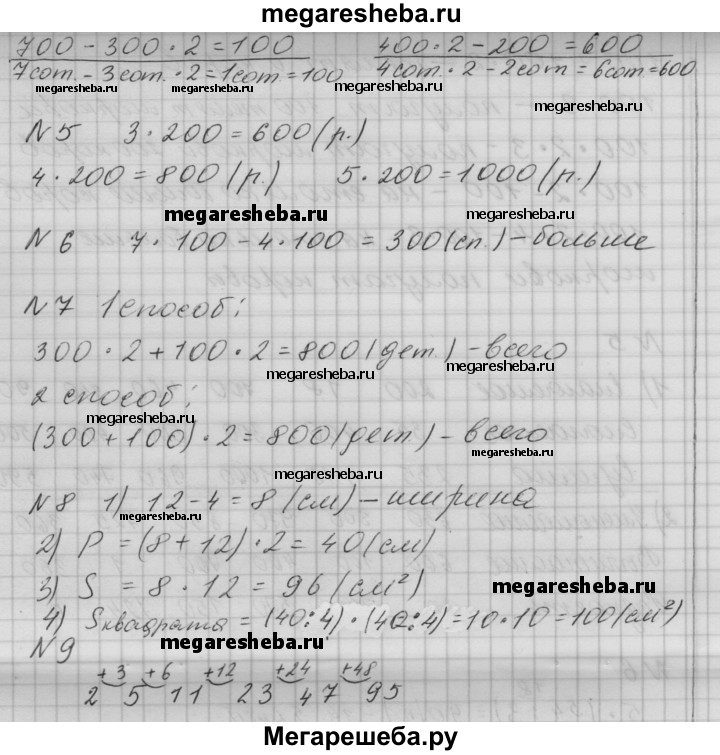 megaresheba.ru
700 - 300 · 2 = 100 400 · 2 - 200 = 600
7сот. - 3сот. · 2 = 1сот = 100 4сот. · 2 - 2сот = 6сот = 600
megaresheba.ru megaresheba.ru megaresheba.ru
megaresheba.ru
№5 3 · 200 = 600 (р.)
4 · 200 = 800 (р.) 5 · 200 = 1000 (р.)
megaresheba.ru megaresheba.ru
№6 7 · 100 - 4 · 100 = 300 (сп.) - больше
№7 1 способ:
300 · 2 + 100 · 2 = 800 (дет.) - всего
megaresheba.ru megaresheba.ru
2 способ:
megaresheba.ru
(300 + 100) · 2 = 800 (дет.) - всего
megaresheba.ru
№8 1) 12 - 4 = 8 (см) - ширина
megaresheba.ru
2) P = (8 + 12) · 2 = 40 (см)
3) S = 8 · 12 = 96 (см²)
megaresheba.ru
4) Sквадраты = (40:4) · (40:4) = 10 · 10 = 100 (см²)
№9
megaresheba.ru
+3 +6 +12 +24 +48
2 5 11 23 47 95
Мегарешеба.ру